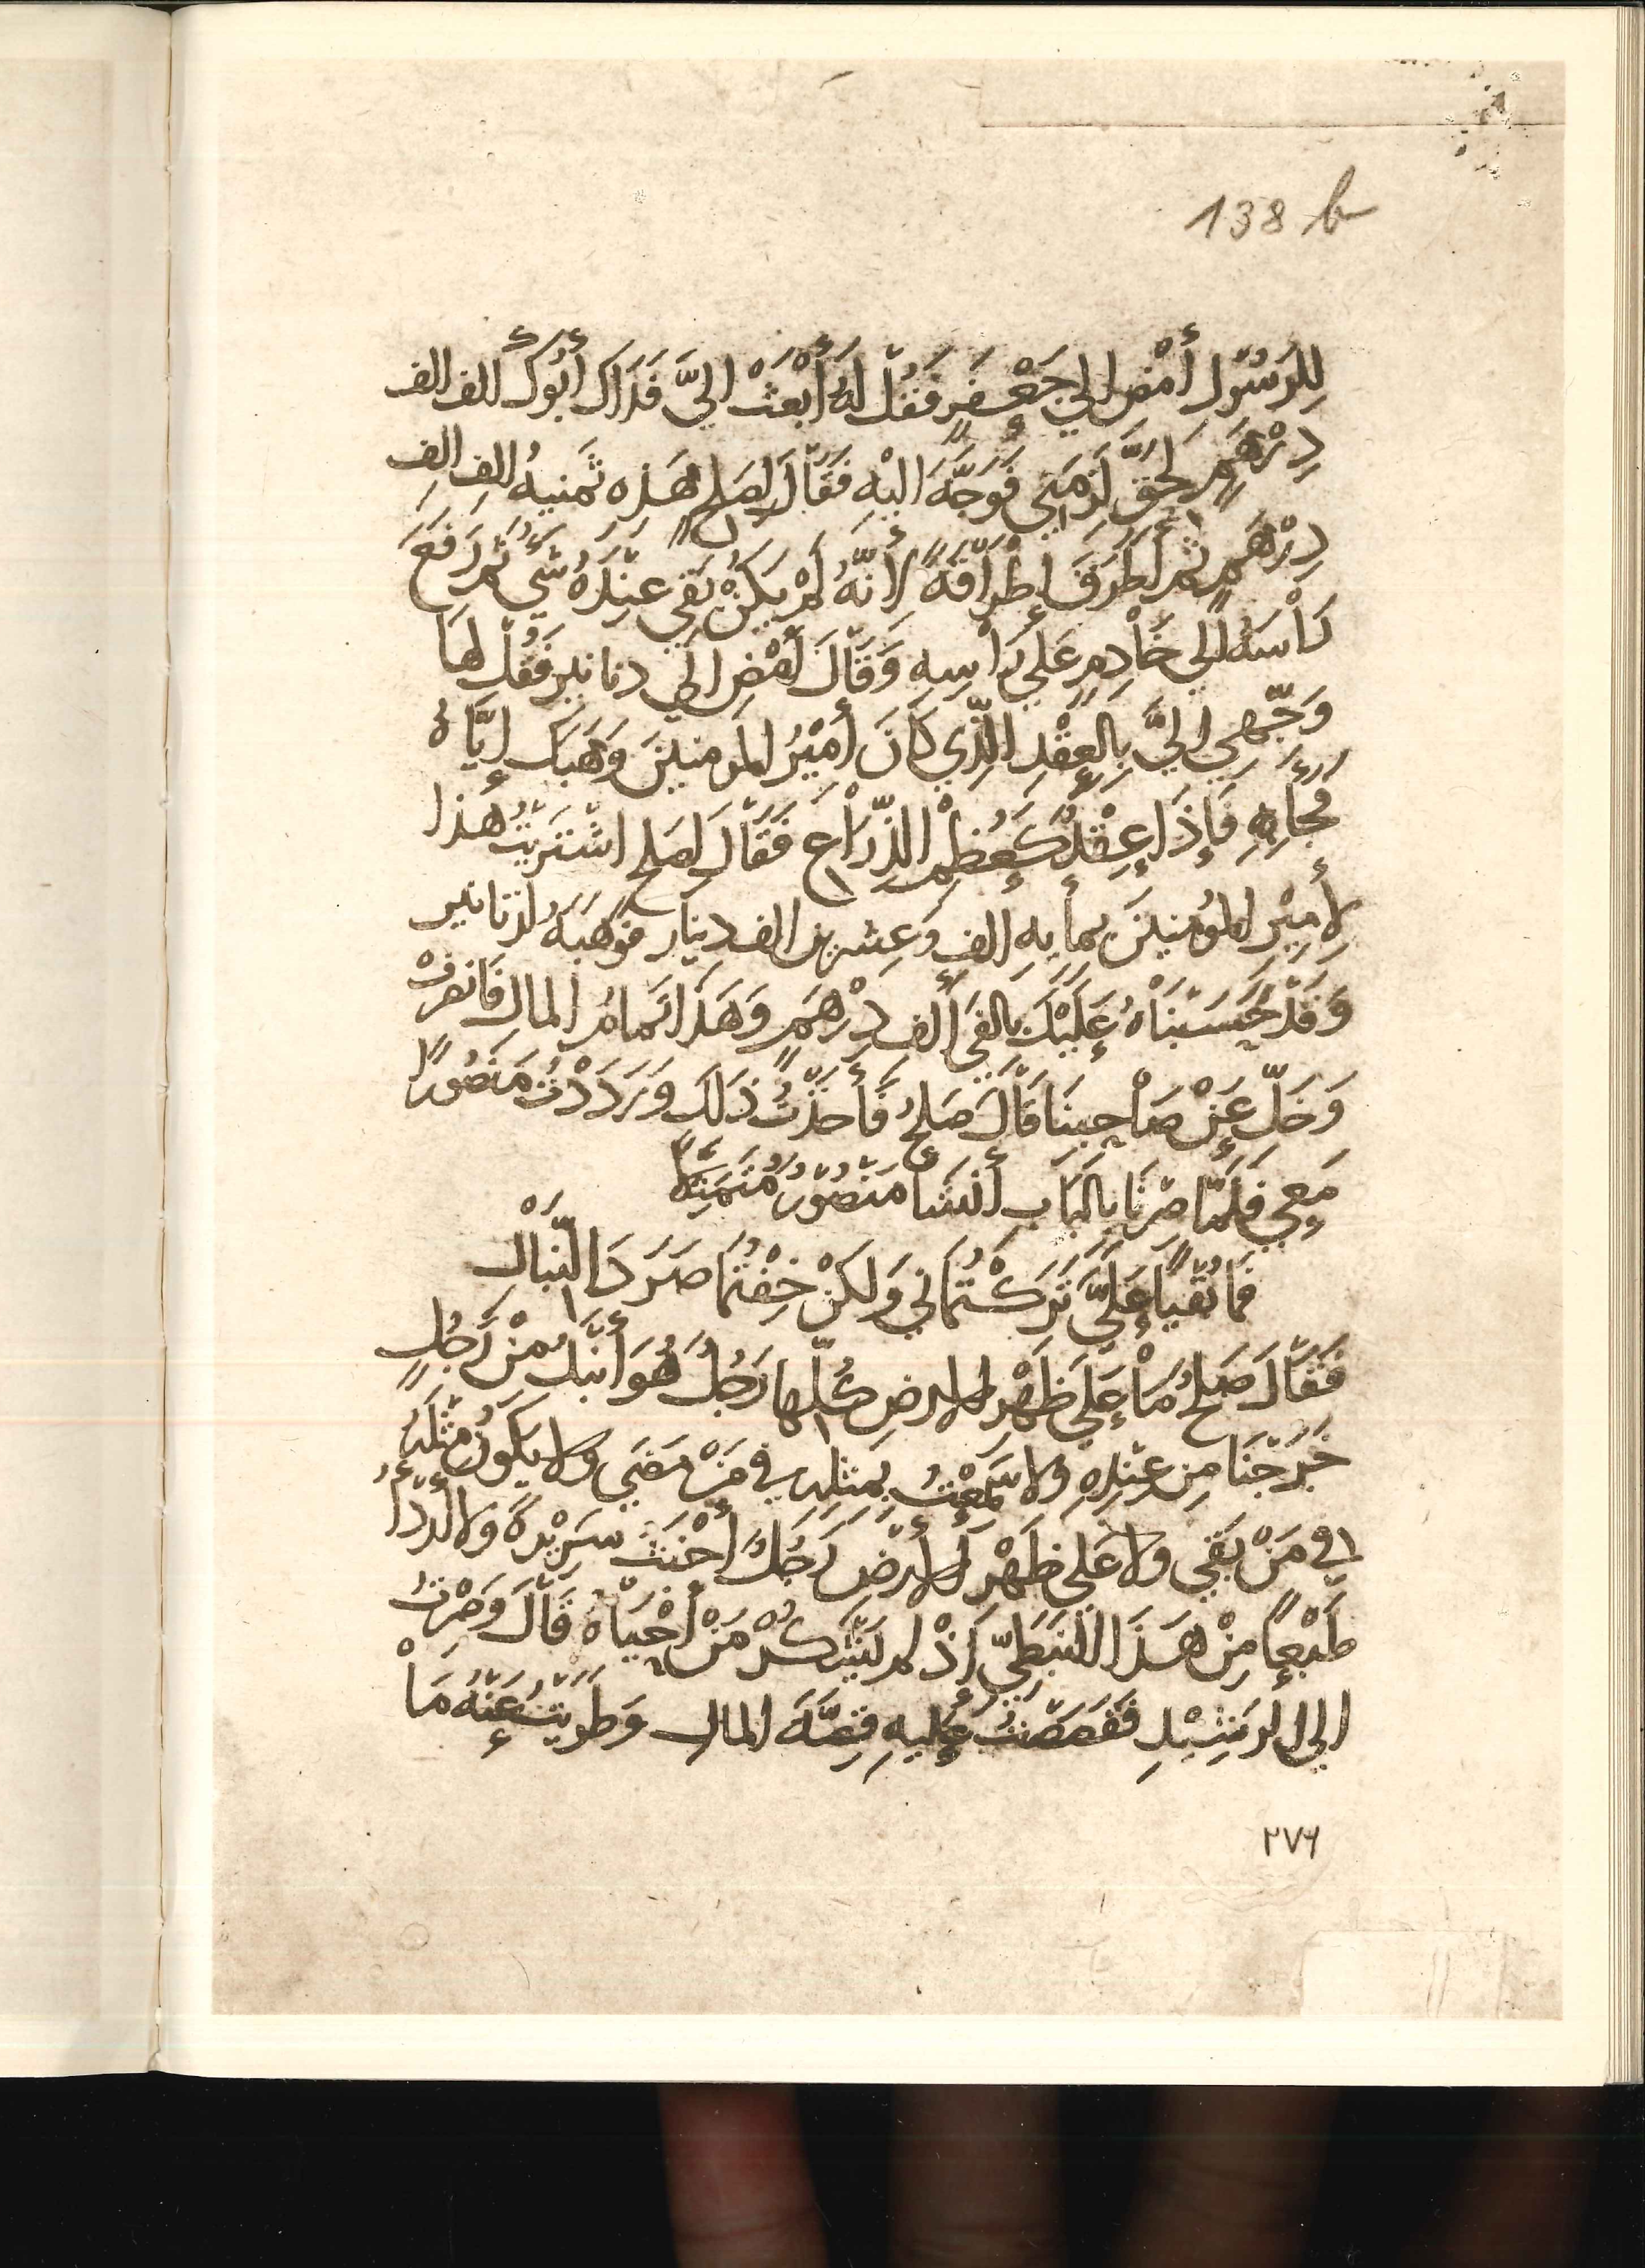 138 b
لِلرَسُوْلِ أمْضِ الي جَعْفَرٍ فَقُلْ لَهُ أبْعَثْ اليَّ فَدَاكَ أبُوْكَ الف الف
دِرْهَمٍ لِحَقٍّ لَزِمَنِي فَوَجَّهَ اليْهِ فَقَالَ لِصَلحٍ هَذِه ثَمنيهُ الفِ الفِ
دِرْهَمٍ ثم أطرَقَ إطْرَاقَةً لأنّهُ لَمْ يَكُنْ بَقي عِنْدَهُ شَي ثُم رَفَعَ
رَأْسَهُ الي خَاْدِمٍ عَلَي رَاْسِهِ وَقَاْلَ أمْضِ الَي دنانير فَقُل لَهَا
وَجّهِي اليَّ بِالعِقْدِ الّذِي كَانَ أمِيْرُ المومنينَ وَهَبَكِ إيَّاهُ
فجَاَء بِهِ فَإذَا عِقْدٌ كَعُظمِ الذِّرَاْعِ فَقَالَ لصَلحٍ اشْتَرَيْتُ هَذا
لأمِيْرِ المُومِنينَ بِمأيهِ الفِ وَعِشرين الف دِينار فوَهَبَهُ لدنانير
وَقَدْ حَسَبْنَاْهُ عَلَيْكَ بالفَي الف دِرْهَمٍ وَهَذا تَمامُ المالِ فَانصَرفْ
وَخَلِّ عَنْ صَاْحِبِنَا قَاْلَ صَلحُ فَأخذْتُ ذَلكَ وَرَدَدْتُ مَنصُورًا
مَعِي فَلَمّا صِرْنَا بِالبَابِ أنشَا مَنْصُوْرُ مُتَمَثِّلًا
فَمَا بُقْيًا عَلَيَّ تَرَكْتُمَاني وَلكنْ خِفْتُما صَرَدَ النّبَالْ
فَقَاْلَ صَلحُ مَاْ عَلَي ظَهْرِ الارضِ كُلّها رَجُلُ هُوَ أنْبَلُ مِنْ رَجُلٍ
خَرَجْنَا مِن عِنْدِهِ ولا سَمعْتُ بِمثلِهِ في مَنْ مَضَي ولا يَكُونُ مِثْلَهُ
في مَنْ بَقي ولا عَلي ظَهْرِ الارْضِ رَجُلُ أخْبَثَ سَرِيْرةً ولا أرْدَأُ
طَبْعًا مِنْ هَذَا النَبَطِيّ اذْ لم يَشْكُرْ مَنْ أحْيَاْهُ قَاْلَ وَصِرْتُ
الي الرشِيْدِ فَقَصَصْتُ عَليهِ قِصَّةَ المالِ وَطَوَيْتُ عَنْهُ مَاْ
٢٧٦